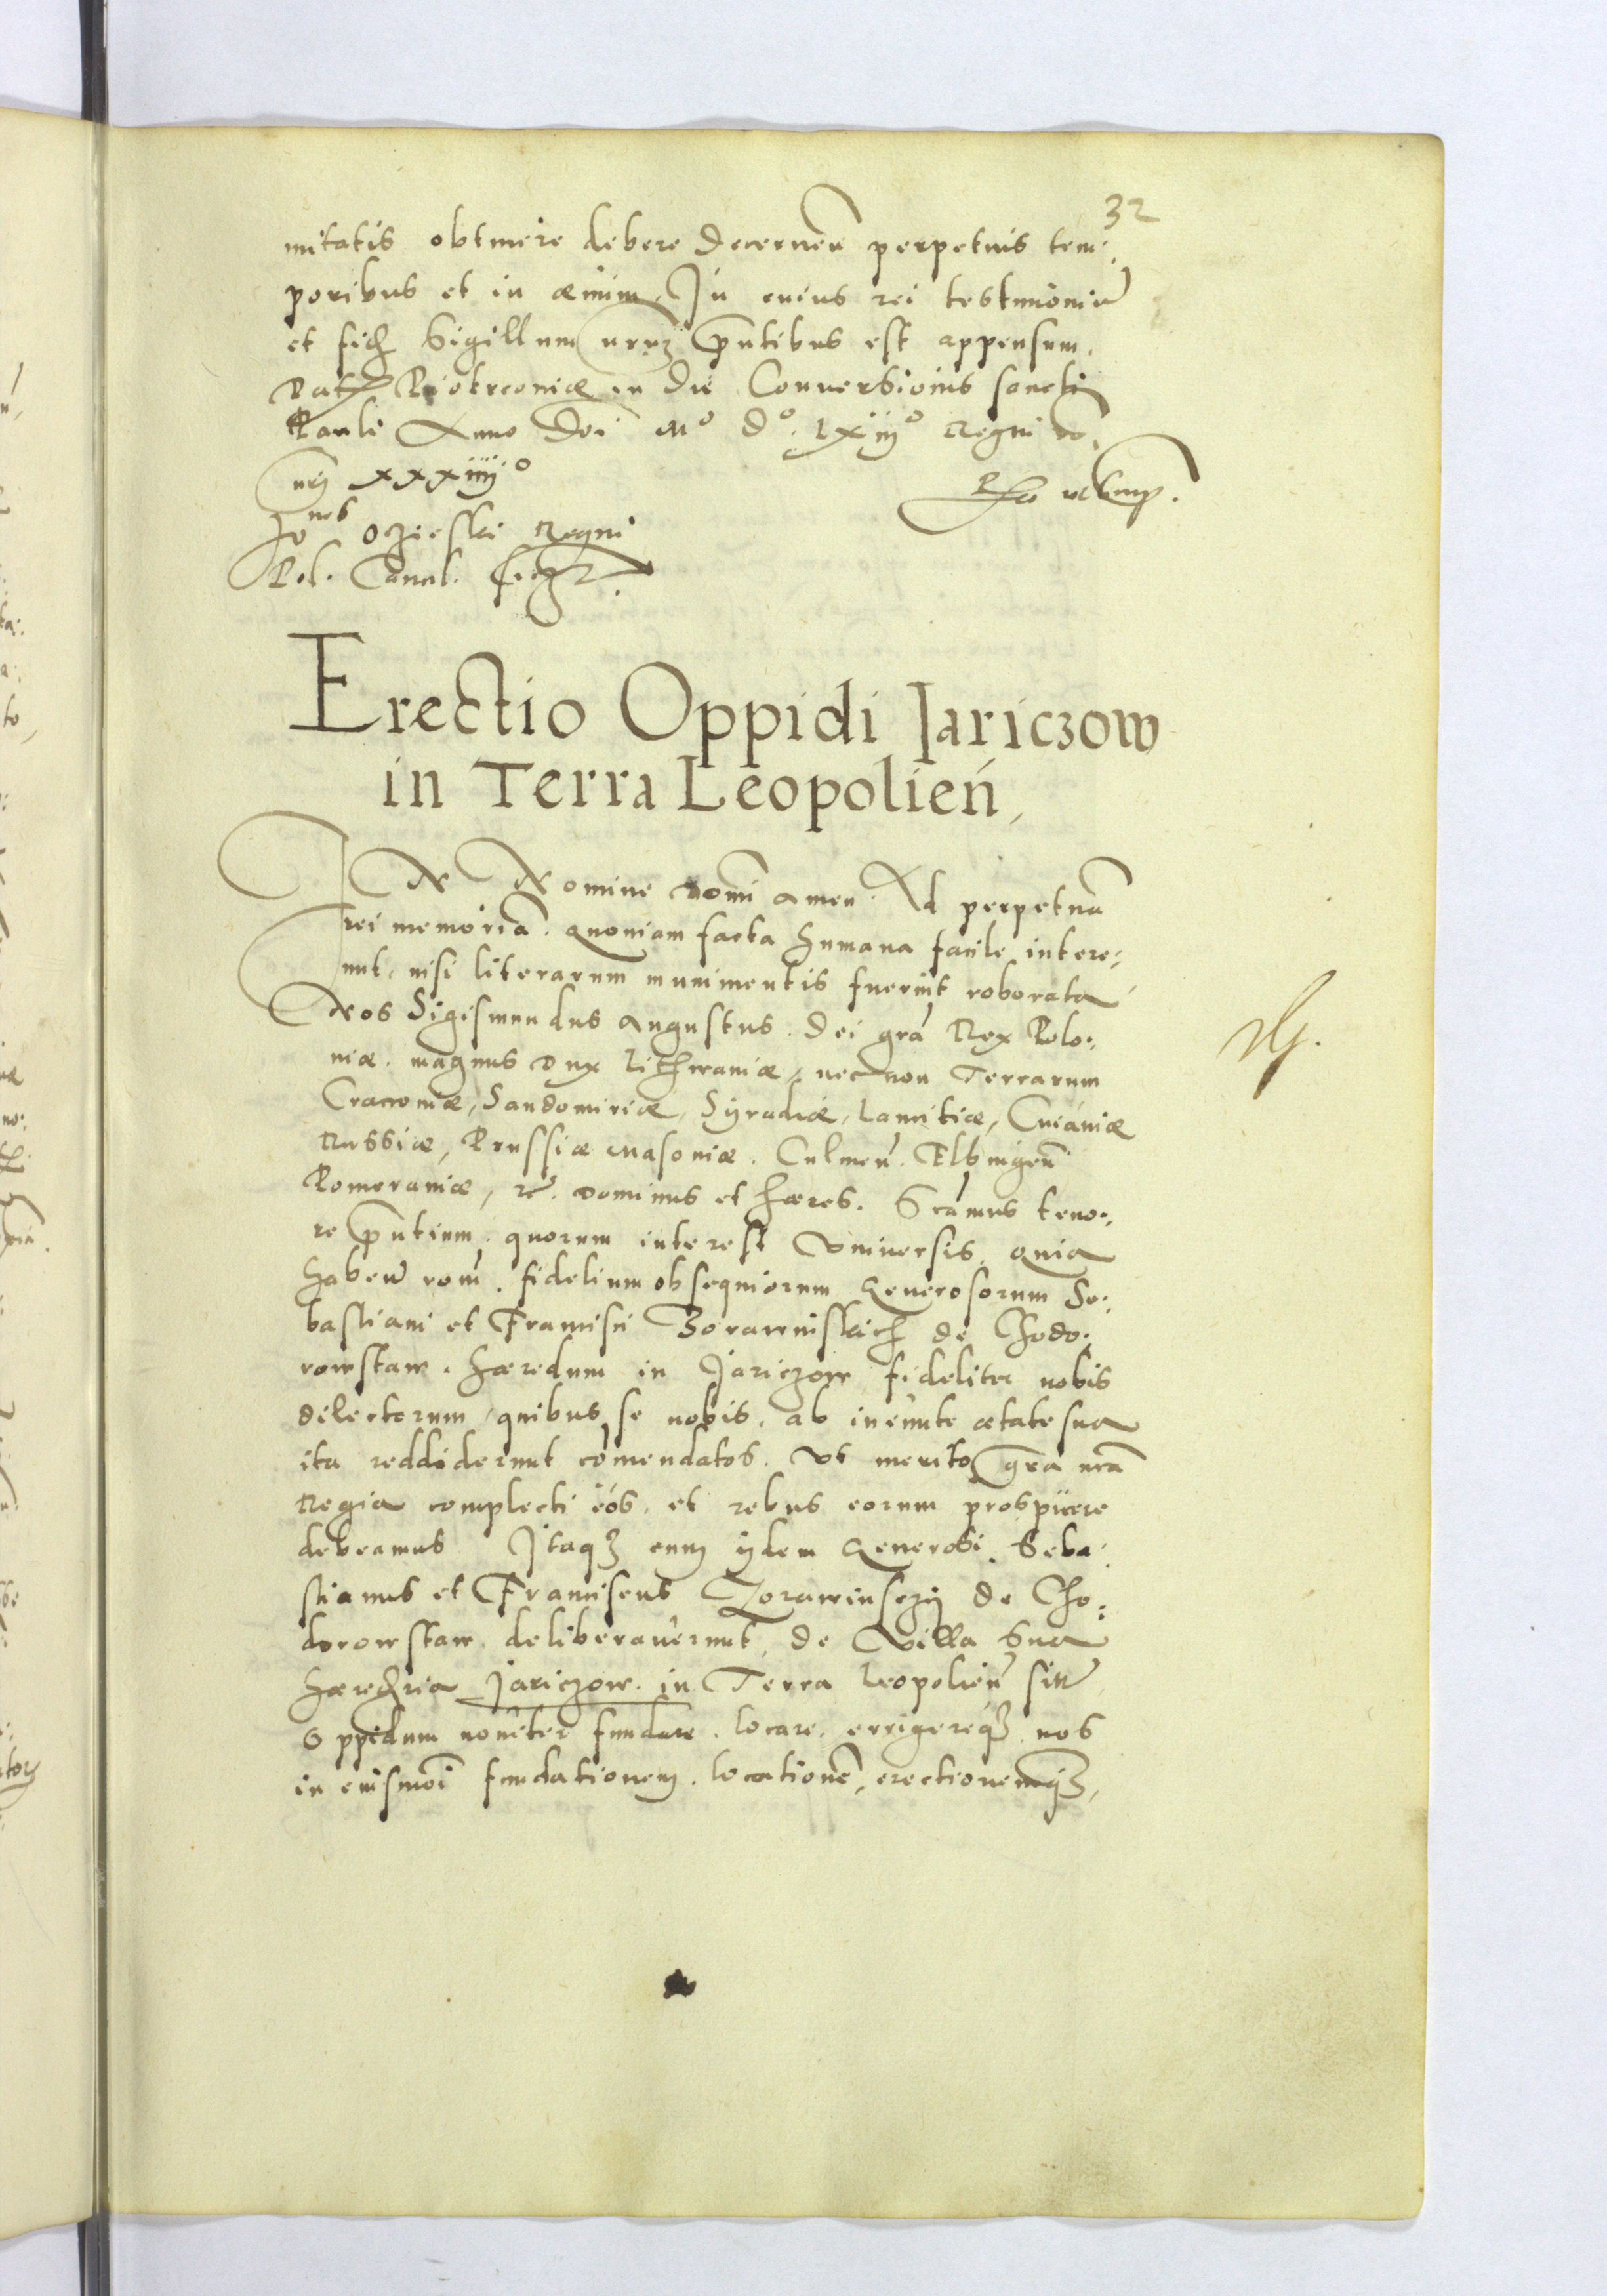 32
nitatis obtinere debere Decernen̄ perpetuis tem:
poribus et in æuum, In cuius rei testimoniū
et fid Sigillum nrm̄ pn̄tibus est appensum.
Dat Piotrcouiæ in die Conuersionis sancti
Pauli Anno Dnī Mº Dº. LXiijº Regni vō.
nrī xxxiiijº
Joan̄es Oczieski Regni
Pol. Cancel.
Erectio Oppidi Jariczow
in Terra Leopolień,
IN Nomine Domī Amen. Ad perpetuā
rei memoriā. Quoniam facta humana facile intere:
unt, nisi literarum munimentis fuerint roborata
Nos Sigismundus Augustus. Dei grā Rex Polo:
niæ. magnus Dux Lithwaniæ, nec non Terrarum
Cracouiæ, Sandomiriæ, Syradiæ, Lanciciæ, Cuiauiæ
Russiæ, Prussiæ Masouiæ. Culmeń. Elbingeń
Pomeraniæ, &c. Dominus et hæres. Significamus teno:
re pn̄tium. quorum interest Vniuersis, quia
haben̄ ronē. fidelium obsequiorum Generosorum Se:
bastiani et Francisci Zorawinskich de Chodo:
rowstaw. hæredum in Jariczow fideliter nobis
dilectorum, quibus se nobis, ab ineunte ætate sua
ita reddiderunt comendatos. Vt merito grā nrā
Regia complecti eos, et rebus eorum prospicere
debeamus Itaq₃ cum ijdem Generosi Seba:
stianus et Franciscus Zorawinsczij de Cho:
dorowstaw. deliberauerunt, de Villa Sua
hæredria Jariczow. in Terra Leopolień sitt
Oppidum nouiter fundare. locare. errigereq₃ nos
in eiusmōi fundationem. locationē, erectionemq₃,